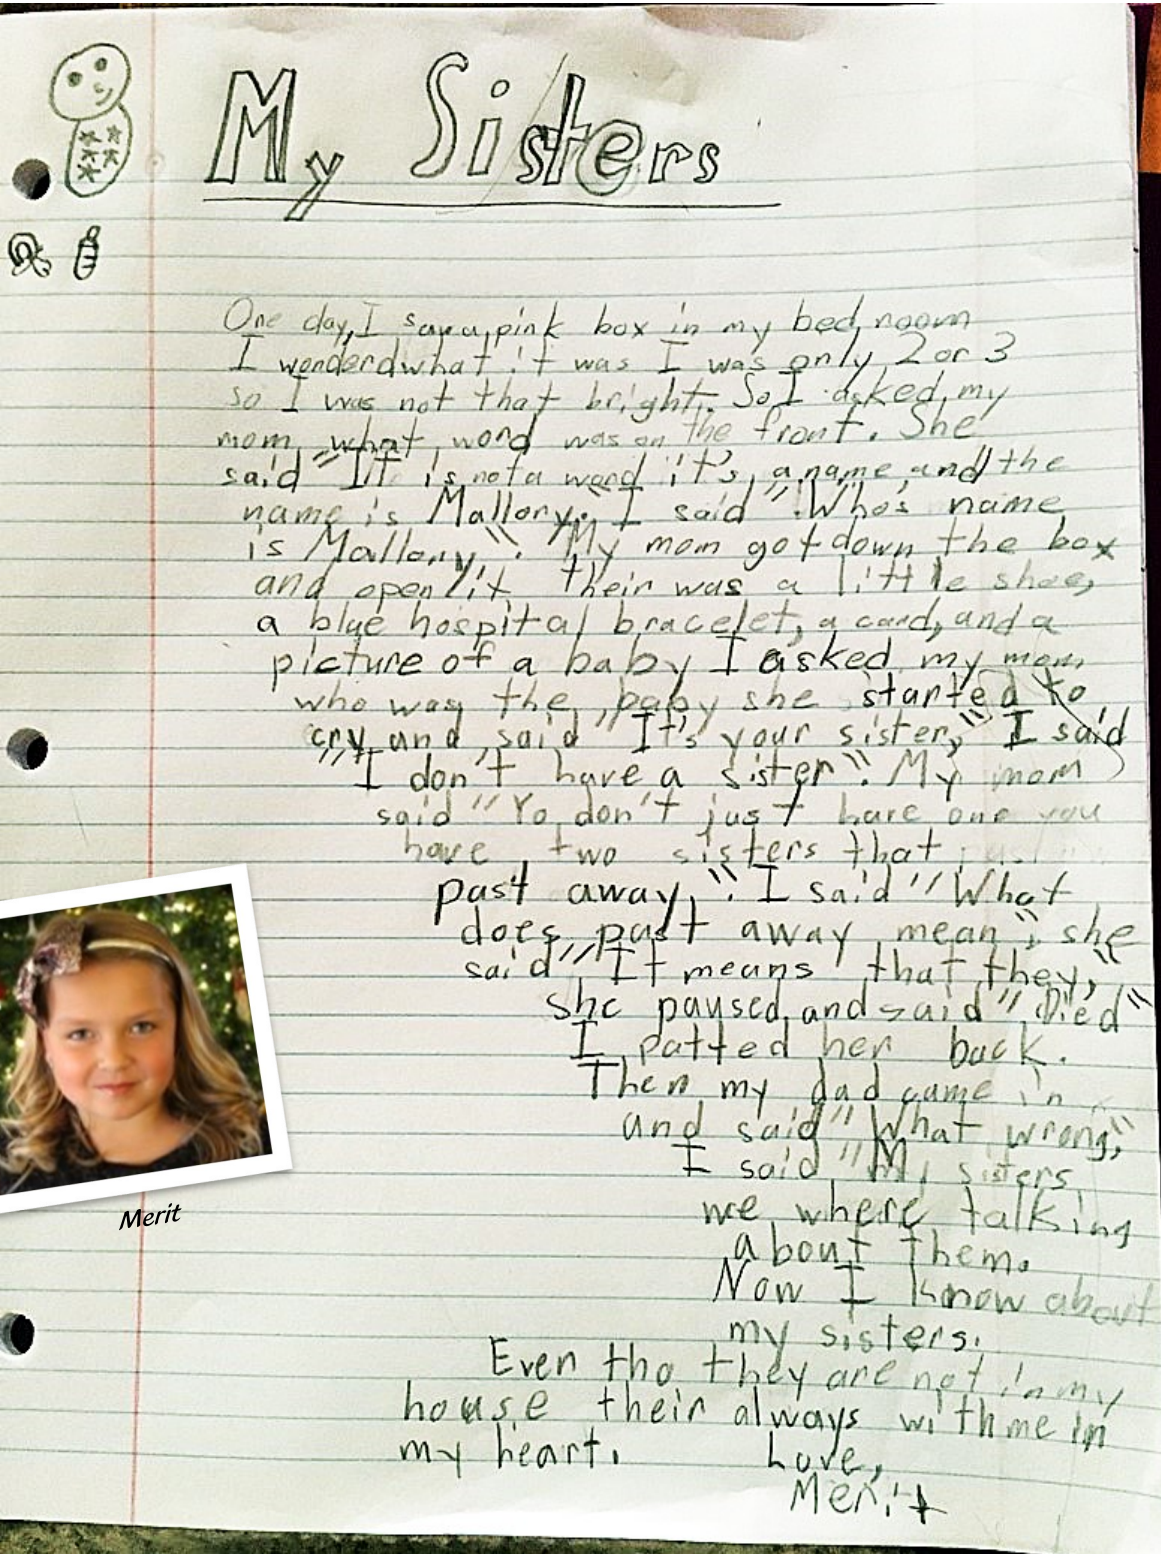 My Sisters
One day, I saw a pink box in my bed room
I wonderd what it was I was only 2 or 3
so I was not that bright. So I asked my
mom what word was on the front. She
said "It is not a word it's a name and the
name is Mallory." I said "Who's name
is Mallory". My mom got down the box
and open it their was a little shoe,
a blue hospital bracelet, a card, and a
picture of a baby I asked my mom
who was the baby she started to
cry and said "It's your sister," I said
"I don't have a sister". My mom
said "Yo don't just have one you
have two sisters that
past away,". I said "What
does past away mean", she
said "It means that they,"
she paused and said "Died"
I patted her back.
Then my dad came in
and said "What wrong,"
I said "My sisters
we where talking
about them.
Now I know about
my sisters.
Even tho they are not in my
house their always with me in
my heart. Love,
Merit
Merit